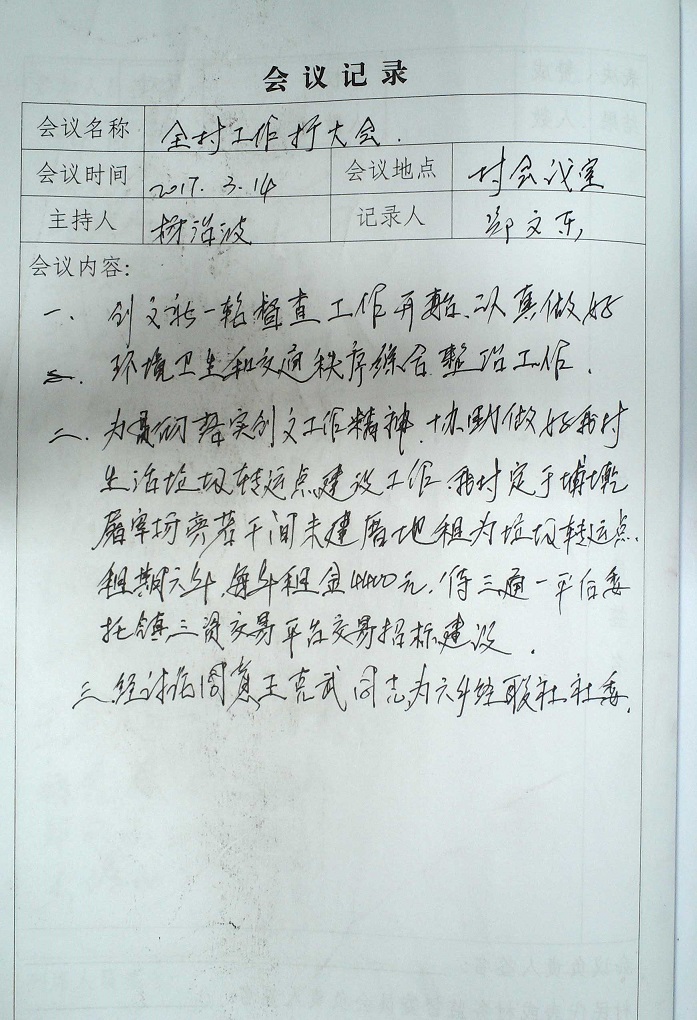 会议记录
会议名称 全村工作扩大会.
会议时间 2017.3.14 会议地点 村会议室
主持人 记录人 郑文东
会议内容:
一、创文新一轮督查工作再动、认真做好
环境卫生和交通秩序综合整治工作.
二、为贯彻落实创文工作精神,协助做好我村
生活垃圾转运点建设工作,我村定于埔墘
屠宰场旁若干间未建厝地租为垃圾转运点,
租期六年,每年租金4400元.待三通一平后委
托镇三资交易平台交易招标建设.
三、经讨论同意王克武同志为六乡经联社社委.